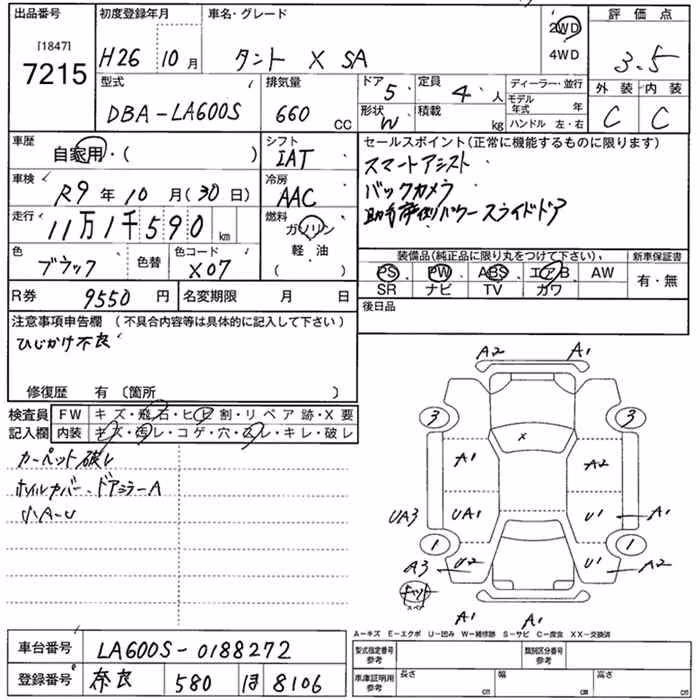 出品番号 初度登録年月 車名・グレード 評価点
[1847]
7215
H26 10月 タント X SA 2WD 4WD 3.5
型式 排気量 ドア 定員 ディーラー・並行 外装 内装
DBA-LA600S 660 CC 5 4人 モデル年式 年 C C
形状 W 積載 kg ハンドル 左・右
車歴 シフト セールスポイント(正常に機能するものに限ります)
自家用・( ) IAT スマートアシスト
車検 冷房 バックカメラ
R9年10月(30日) AAC 助手席側パワースライドドア
走行 11万1千590km 燃料 ガソリン 軽・油 ( )
色 ブラック 色替 色コード X07
装備品(純正品に限り丸をつけて下さい) 新車保証書
PS PW ABS エアB AW 有・無
SR ナビ TV カワ
R券 9550円 名変期限 月 日 後日品
注意事項申告欄(不具合内容等は具体的に記入して下さい)
ひじかけ不良
修復歴 有〔箇所 〕
検査員 FW キズ・飛石・ヒビ割・リペア跡・X要
記入欄 内装 キズ・汚レ・コゲ・穴・スレ・キレ・破レ
カーペット破レ
ホイルカバー、ドアミラーA
小A-U
A2 A1
3 3
X
A1 A2
UA3 UA1 U1 A1
1 1
A3 U2 U1 A2
キット
スペア
A1 A1
A-キズ E-エクボ U-凹み W-補修跡 S-サビ C-腐食 XX-交換済
車台番号 LA600S-0188272
型式指定番号 参考 類別区分番号 参考
登録番号 奈良 580 ほ 8106
車庫証明用 参考 長さ cm 幅 cm 高さ cm